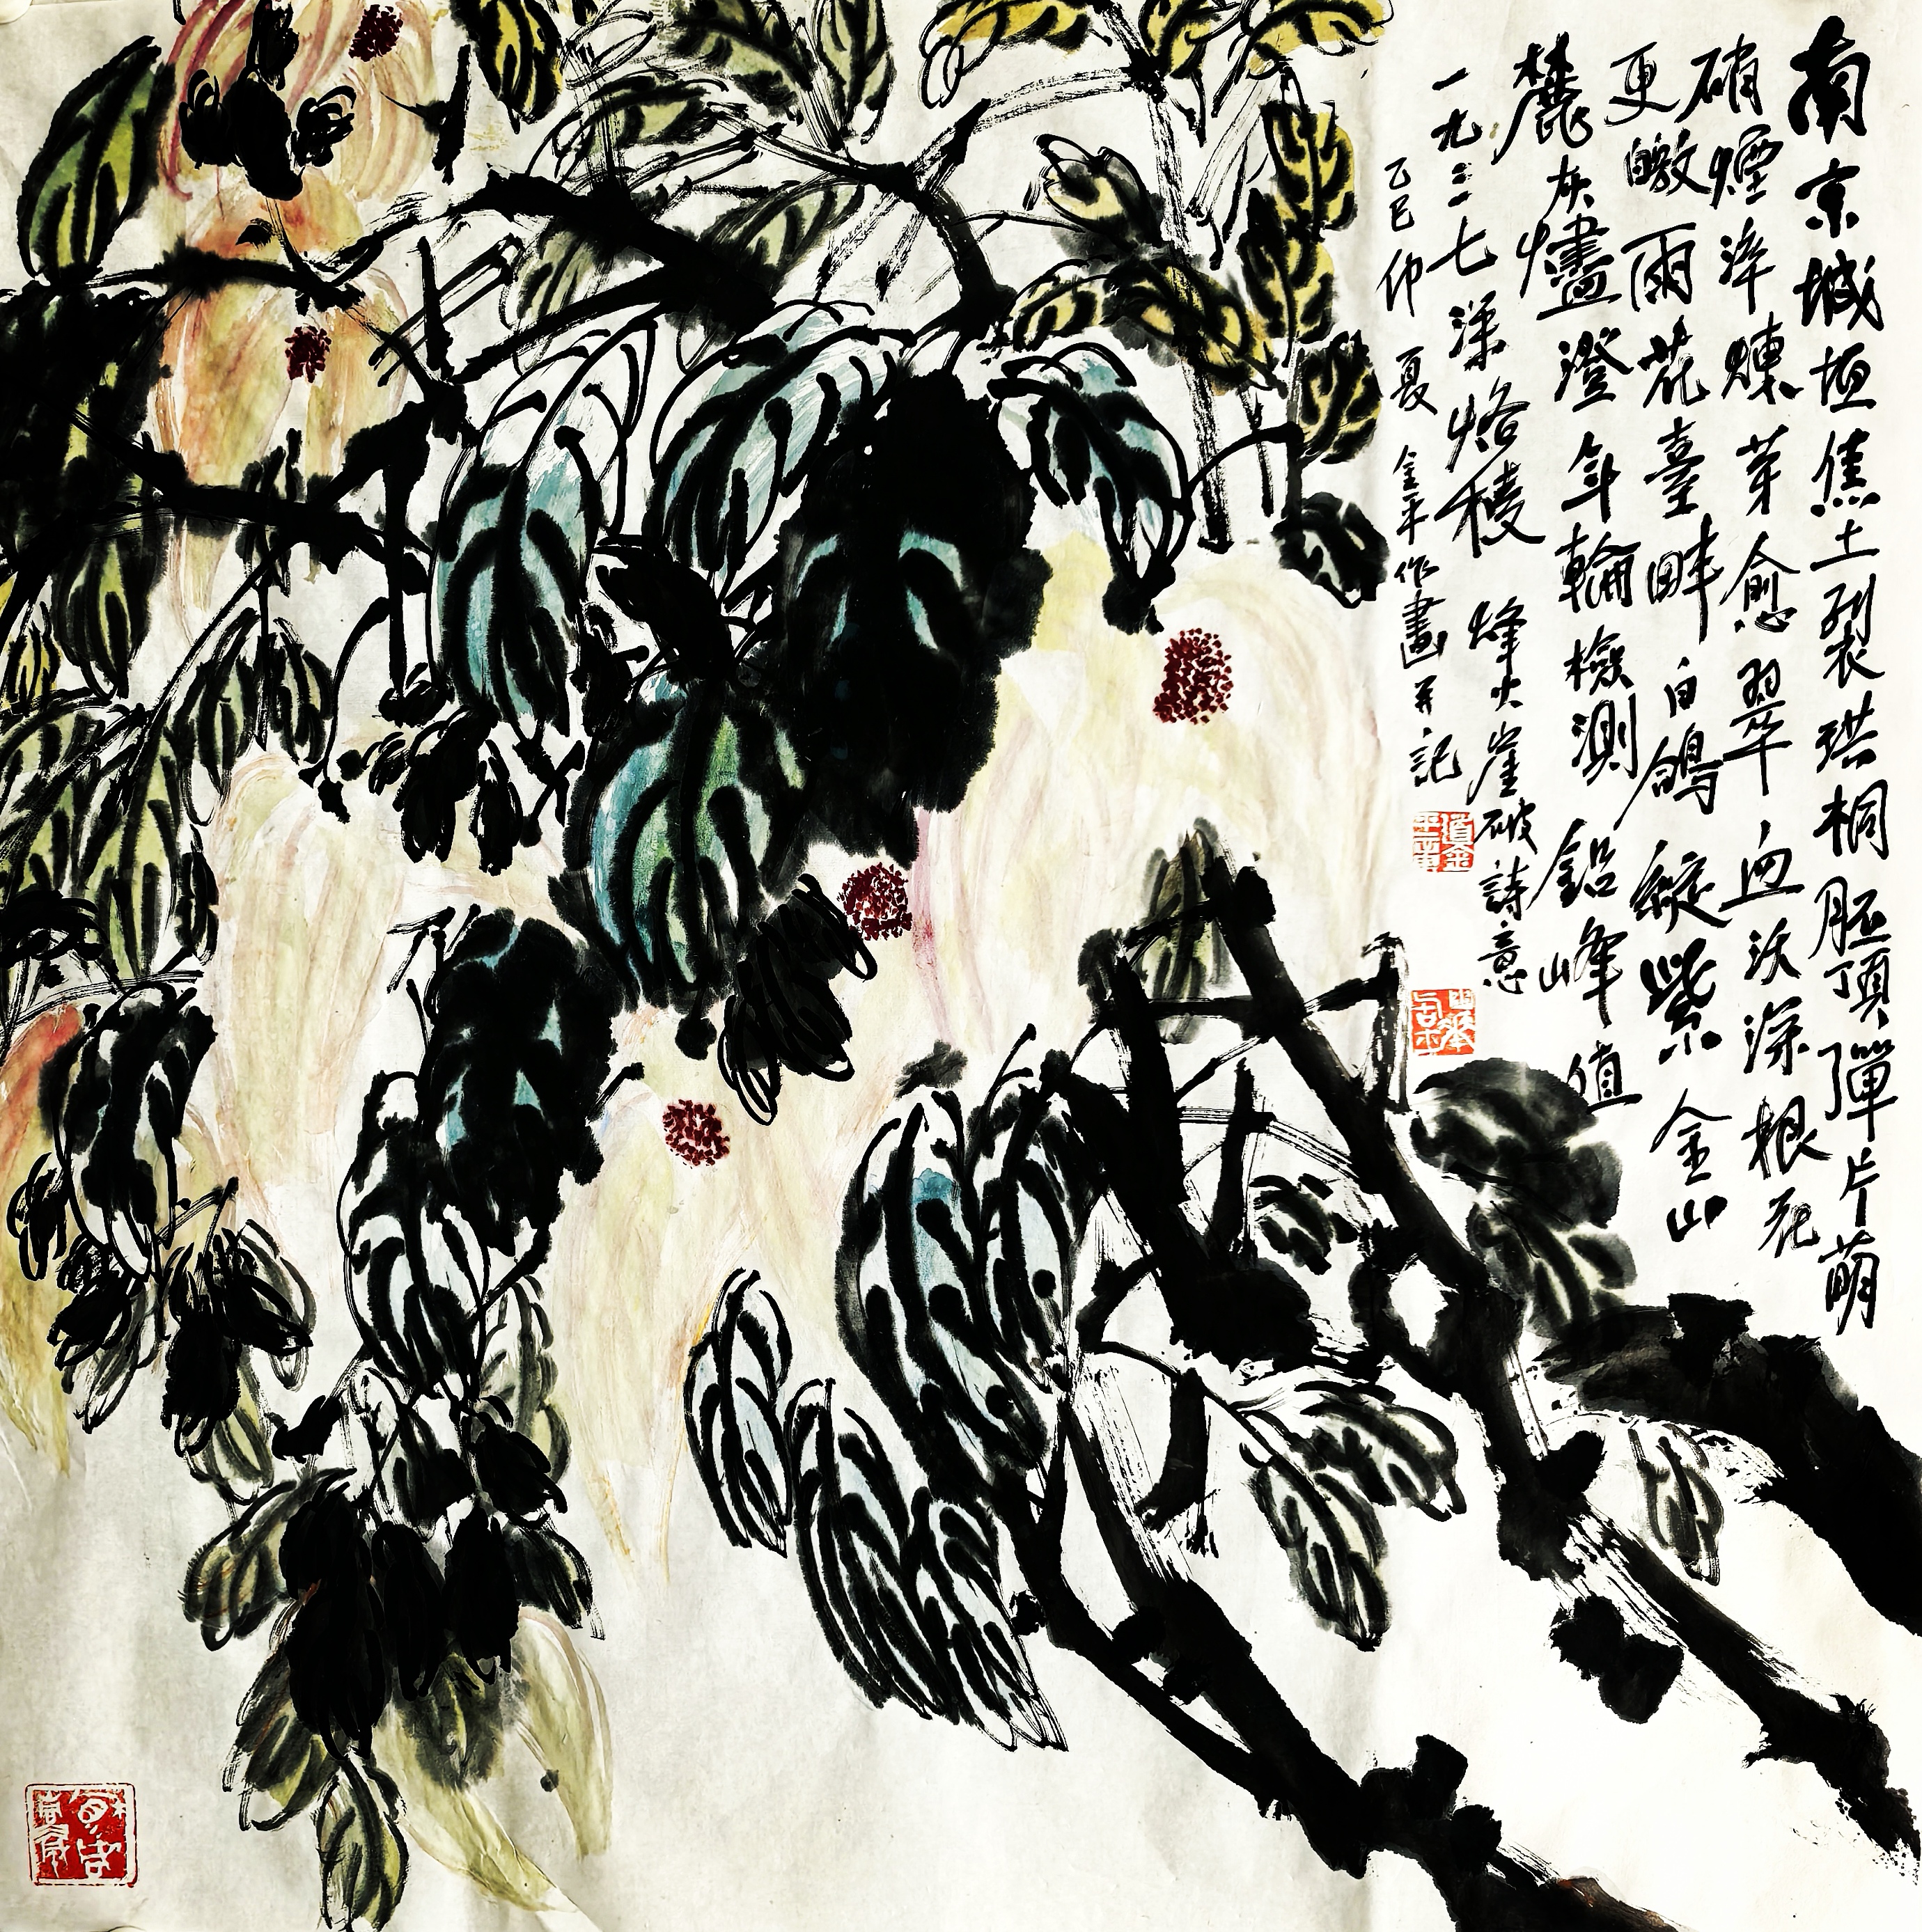 南京城垣焦土裂珙桐胚頂彈片萌
硝煙淬煉芽愈翠血沃深根花
更皦雨花臺畔白鴿綻紫金山
麓灰燼澄年輪檢測鉛峰值
一九三七深烙稜 烽火崖破詩意
乙巳仲夏 金平作畫並記